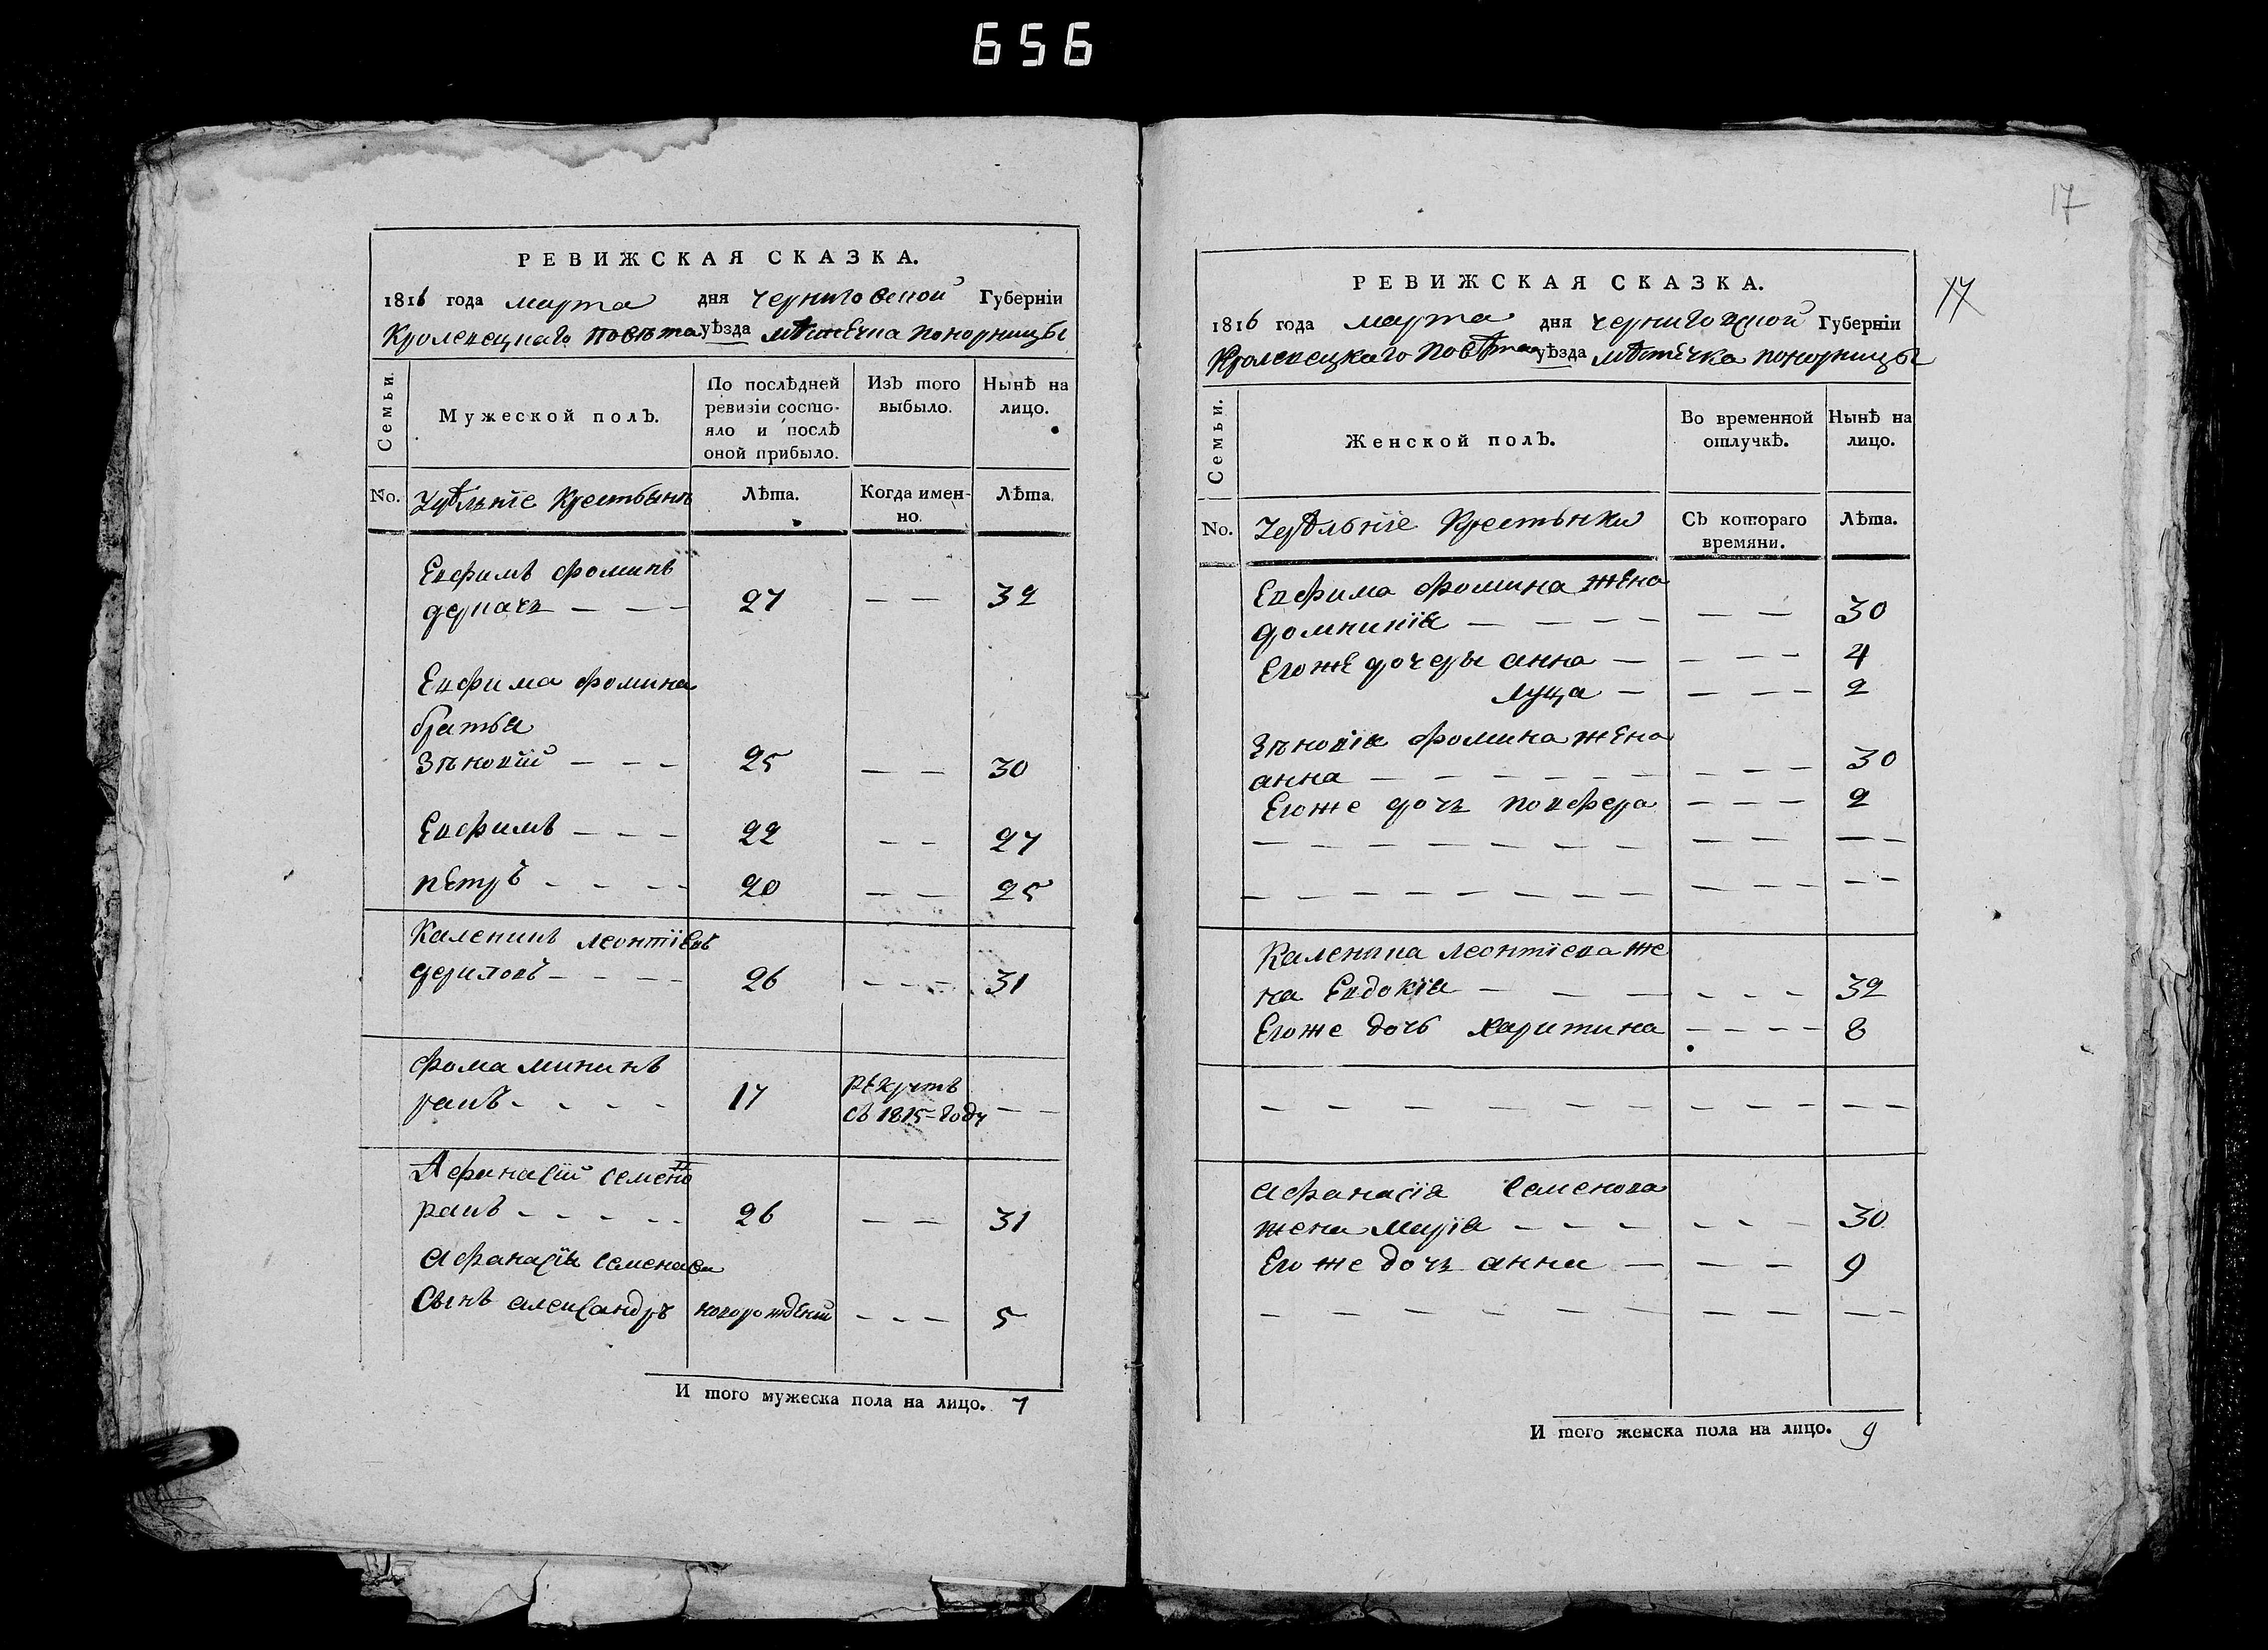 656
РЕВИЖСКАЯ СКАЗКА.
1816 года марта дня черниговской Губерніи
Кролевецкаго повѣта уѣзда мѣстечка понорницы
Семьи.
Мужеской полъ.
По послѣдней ревизіи состояло и послѣ оной прибыло.
Изъ того выбыло.
Нынѣ на лицо.
No. Удѣльніе Крестьяне
Лѣта.
Когда именно.
Лѣта.
Евфимъ фоминъ
деркачъ — — — 27 — — 32
Евфима фомина
братья
Зѣновій — — — 25 — — 30
Евфимъ — — — 22 — — 27
петръ - - - - 20 — — 25
Каленикъ леонтіевъ
— — — 26 - - - 31
фома мининъ
- - - - 17 рекрутъ
въ 1815-году — —
Афанасій семено
- - - - - 26 — — 31
афанасія семенова
сынъ александръ новорожденій - - - 5
И того мужеска пола на лицо. 7
17
17
РЕВИЖСКАЯ СКАЗКА.
1816 года марта дня черниговской Губерніи
Кролевецкаго повѣта уѣзда мѣстечка понорницы
Семьи.
Женской полъ.
Во временной отлучкѣ.
Нынѣ на лицо.
No. Удѣльніе Крестьнки
Съ котораго времяни.
Лѣта.
Евфима фомина жена
домникія — — — — — — 30
Егоже дочеры анна — — — — 4
луца — — — — 2
Зѣновія фомина жена
анна — — — — — — — — — 30
Егоже дочъ повфера — — — 2
— — — — — — — — — — — —
— — — — — — — — — — — — —
Каленика леонтіева же
на Евдокія — — — - - - 32
Егоже дочь харитина — — — — 8
— — — — — — — — — — —
афанасія Семенова
жена марія — — — - - — 30
Его же дочъ анна — — — — 9
— — — — — — — — — — — —
И того женска пола на лицо. 9